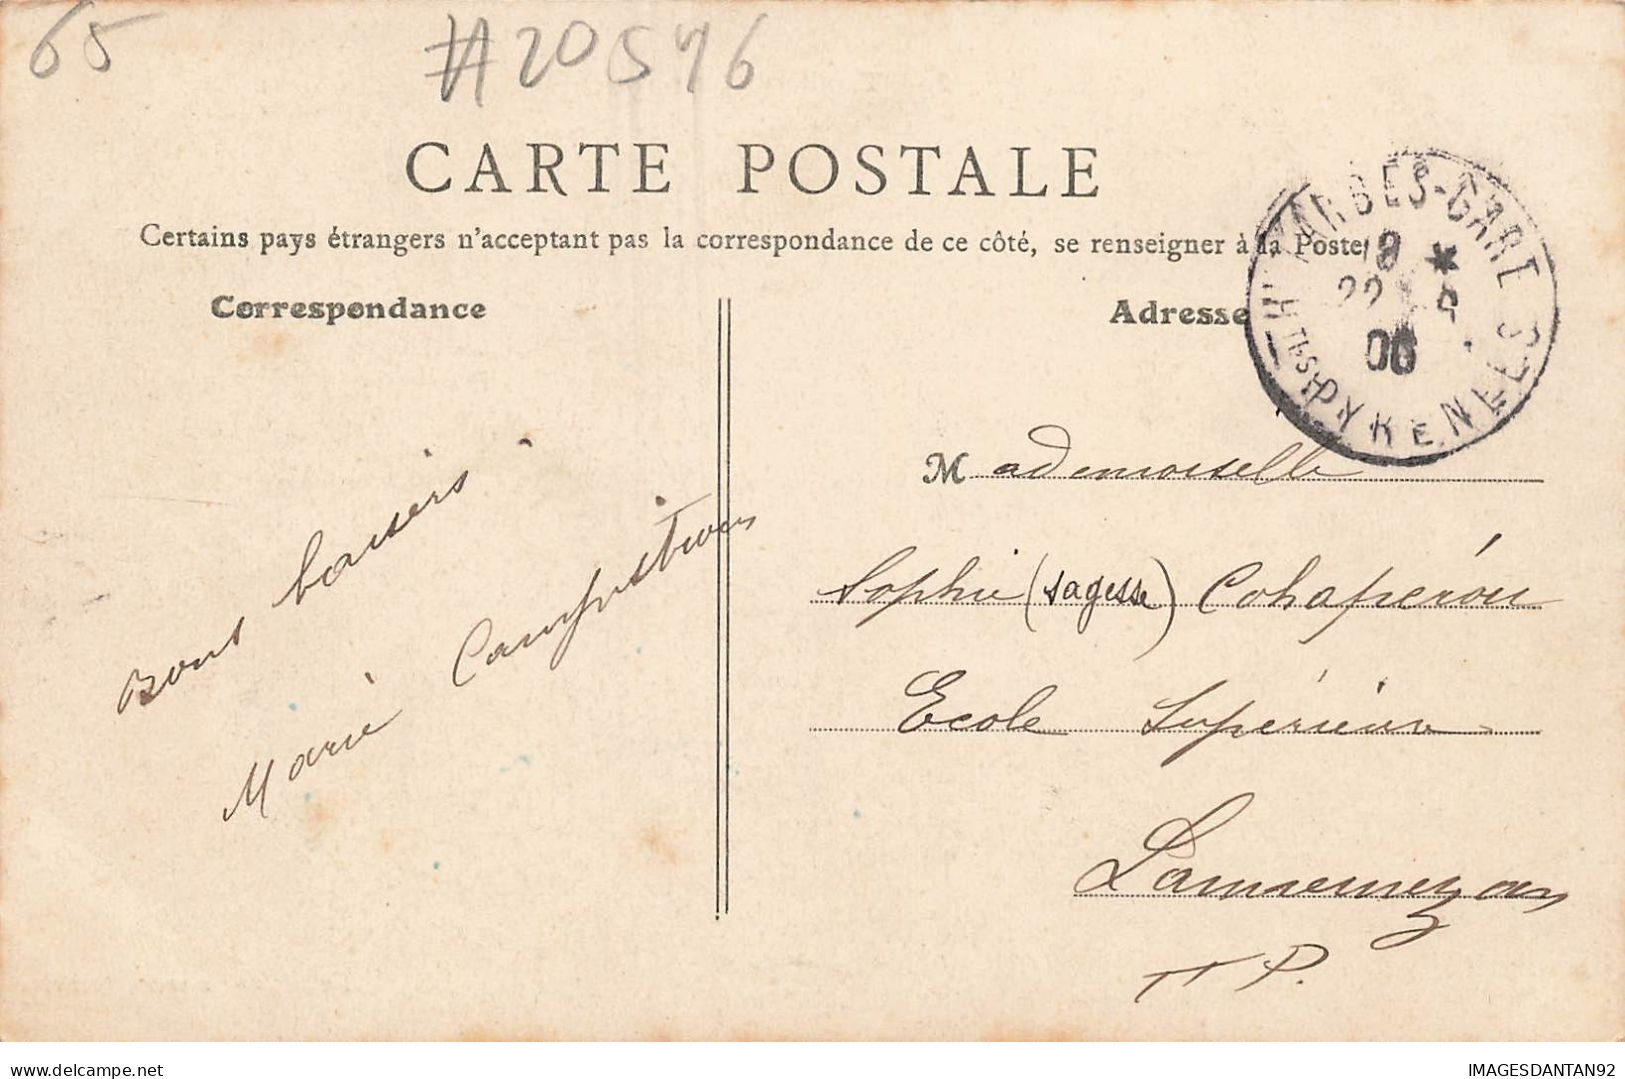 65
#20576
CARTE POSTALE
Certains pays étrangers n'acceptant pas la correspondance de ce côté, se renseigner à la Poste
Correspondance
Adresse
TARBES-GARE
22
06
HTES PYRENEES
Bons baisers
Marie
Mademoiselle
Sophie (sagesse) Cohapérou
Ecole Supérieure
Lannemezan
H P.
IMAGESDANTAN92